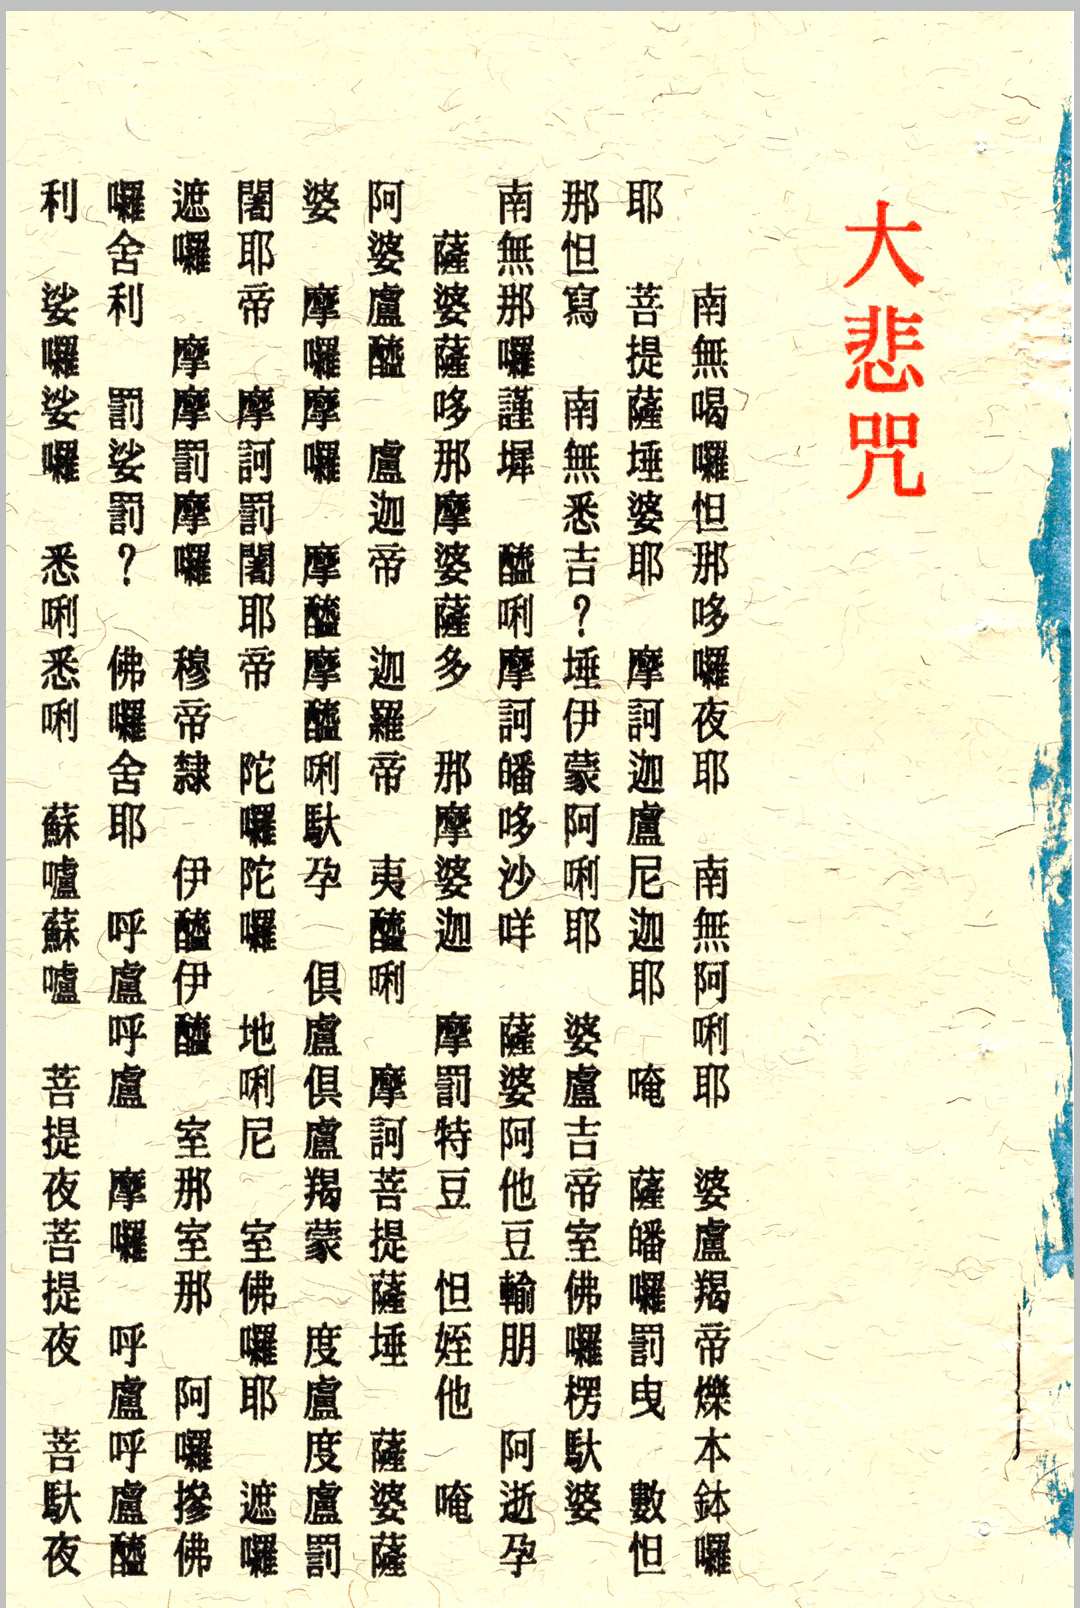 大悲咒
南無喝囉怛那哆囉夜耶　南無阿唎耶　婆盧羯帝爍本鉢囉
耶　菩提薩埵婆耶　摩訶迦盧尼迦耶　唵　薩皤囉罰曳　數怛
那怛寫　南無悉吉?埵伊蒙阿唎耶　婆盧吉帝室佛囉楞馱婆
南無那囉謹墀　醯唎摩訶皤哆沙咩　薩婆阿他豆輸朋　阿逝孕
薩婆薩哆那摩婆薩多　那摩婆迦　摩罰特豆　怛姪他　唵
阿婆盧醯　盧迦帝　迦羅帝　夷醯唎　摩訶菩提薩埵　薩婆薩
婆　摩囉摩囉　摩醯摩醯唎馱孕　俱盧俱盧羯蒙　度盧度盧罰
闍耶帝　摩訶罰闍耶帝　陀囉陀囉　地唎尼　室佛囉耶　遮囉
遮囉　摩摩罰摩囉　穆帝隸　伊醯伊醯　室那室那　阿囉摻佛
囉舍利　罰娑罰?　佛囉舍耶　呼盧呼盧　摩囉　呼盧呼盧醯
利　娑囉娑囉　悉唎悉唎　蘇嚧蘇嚧　菩提夜菩提夜　菩馱夜